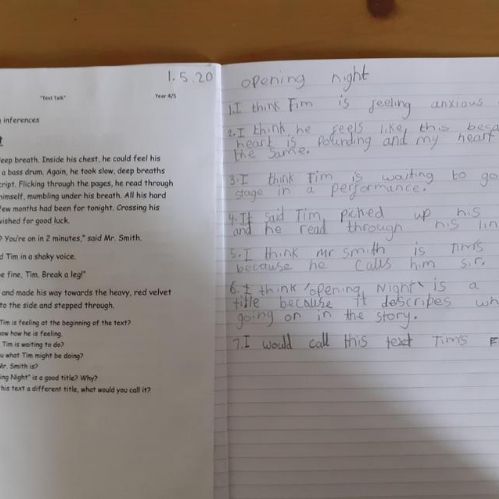 1.5.20
"Text Talk" Year 4/5
inferences
deep breath. Inside his chest, he could feel his
a bass drum. Again, he took slow, deep breaths
cript. Flicking through the pages, he read through
himself, mumbling under his breath. All his hard
few months had been for tonight. Crossing his
wished for good luck.
? You're on in 2 minutes," said Mr. Smith.
d Tim in a shaky voice.
e fine, Tim. Break a leg!"
and made his way towards the heavy, red velvet
to the side and stepped through.
Tim is feeling at the beginning of the text?
ow how he is feeling.
Tim is waiting to do?
u what Tim might be doing?
Mr. Smith is?
ing Night" is a good title? Why?
this text a different title, what would you call it?
opening night
1. I think Tim is feeling anxious
2. I think he feels like this beca
heart is Pounding and my heart
the same.
3. I think Tim is waiting to go
stage in a performance.
4. It said Tim picked up his
and he read through his lin
5. I think mr smith is Tims
because he calls him sir.
6. I think 'opening Night' is a
title because it describes wh
going on in the story.
7. I would call this text Tims F